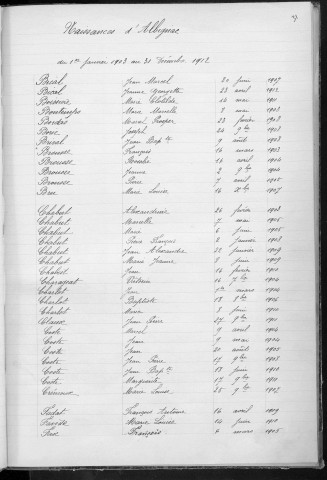 9
Naissances d'Albignac
du 1er Janvier 1903 au 31 Décembre 1912
Bical Jean Marcel 20 Juin 1907
Bical Jeanne Georgette 23 avril 1912
Boisserie Marie Clotilde 14 mai 1911
Marie Marcelle 2 mai 1903
Bordas Marcel Prosper 23 février 1908
Joseph 24 9bre 1903
Jean Bapte 9 août 1903
Brousse François 16 mars 1903
Brousse 16 avril 1904
Brousse Jeanne 2 9bre 1904
Brousse Pierre 7 avril 1905
Marie Louise 16 Xbre 1907
Chabut Alexandrine 26 février 1903
Chabut Marcelle 7 mai 1905
Chabut Marie 6 Juin 1905
Chabut Pierre François 2 Janvier 1908
Chabut Jean Alexandre 22 Janvier 1909
Chabut Marie Jeanne 8 Juin 1909
Chabut Jean 16 février 1910
16 7bre 1904
Charlot Jean 1er mars 1904
Charlot Baptiste 18 8bre 1906
Charlot Marie 8 Juin 1910
Jean Pierre 27 9bre 1911
Coste Marcel 9 avril 1904
Coste Jean 9 mai 1904
Coste Jean 20 août 1905
Coste Jean Pierre 17 9bre 1907
Coste Jean Bapte 13 Juin 1910
Coste Marguerite 17 9bre 1911
Marie Louise 25 9bre 1907
François Antoine 16 avril 1909
Marie Louise 14 Juin 1910
François 4 mars 1905